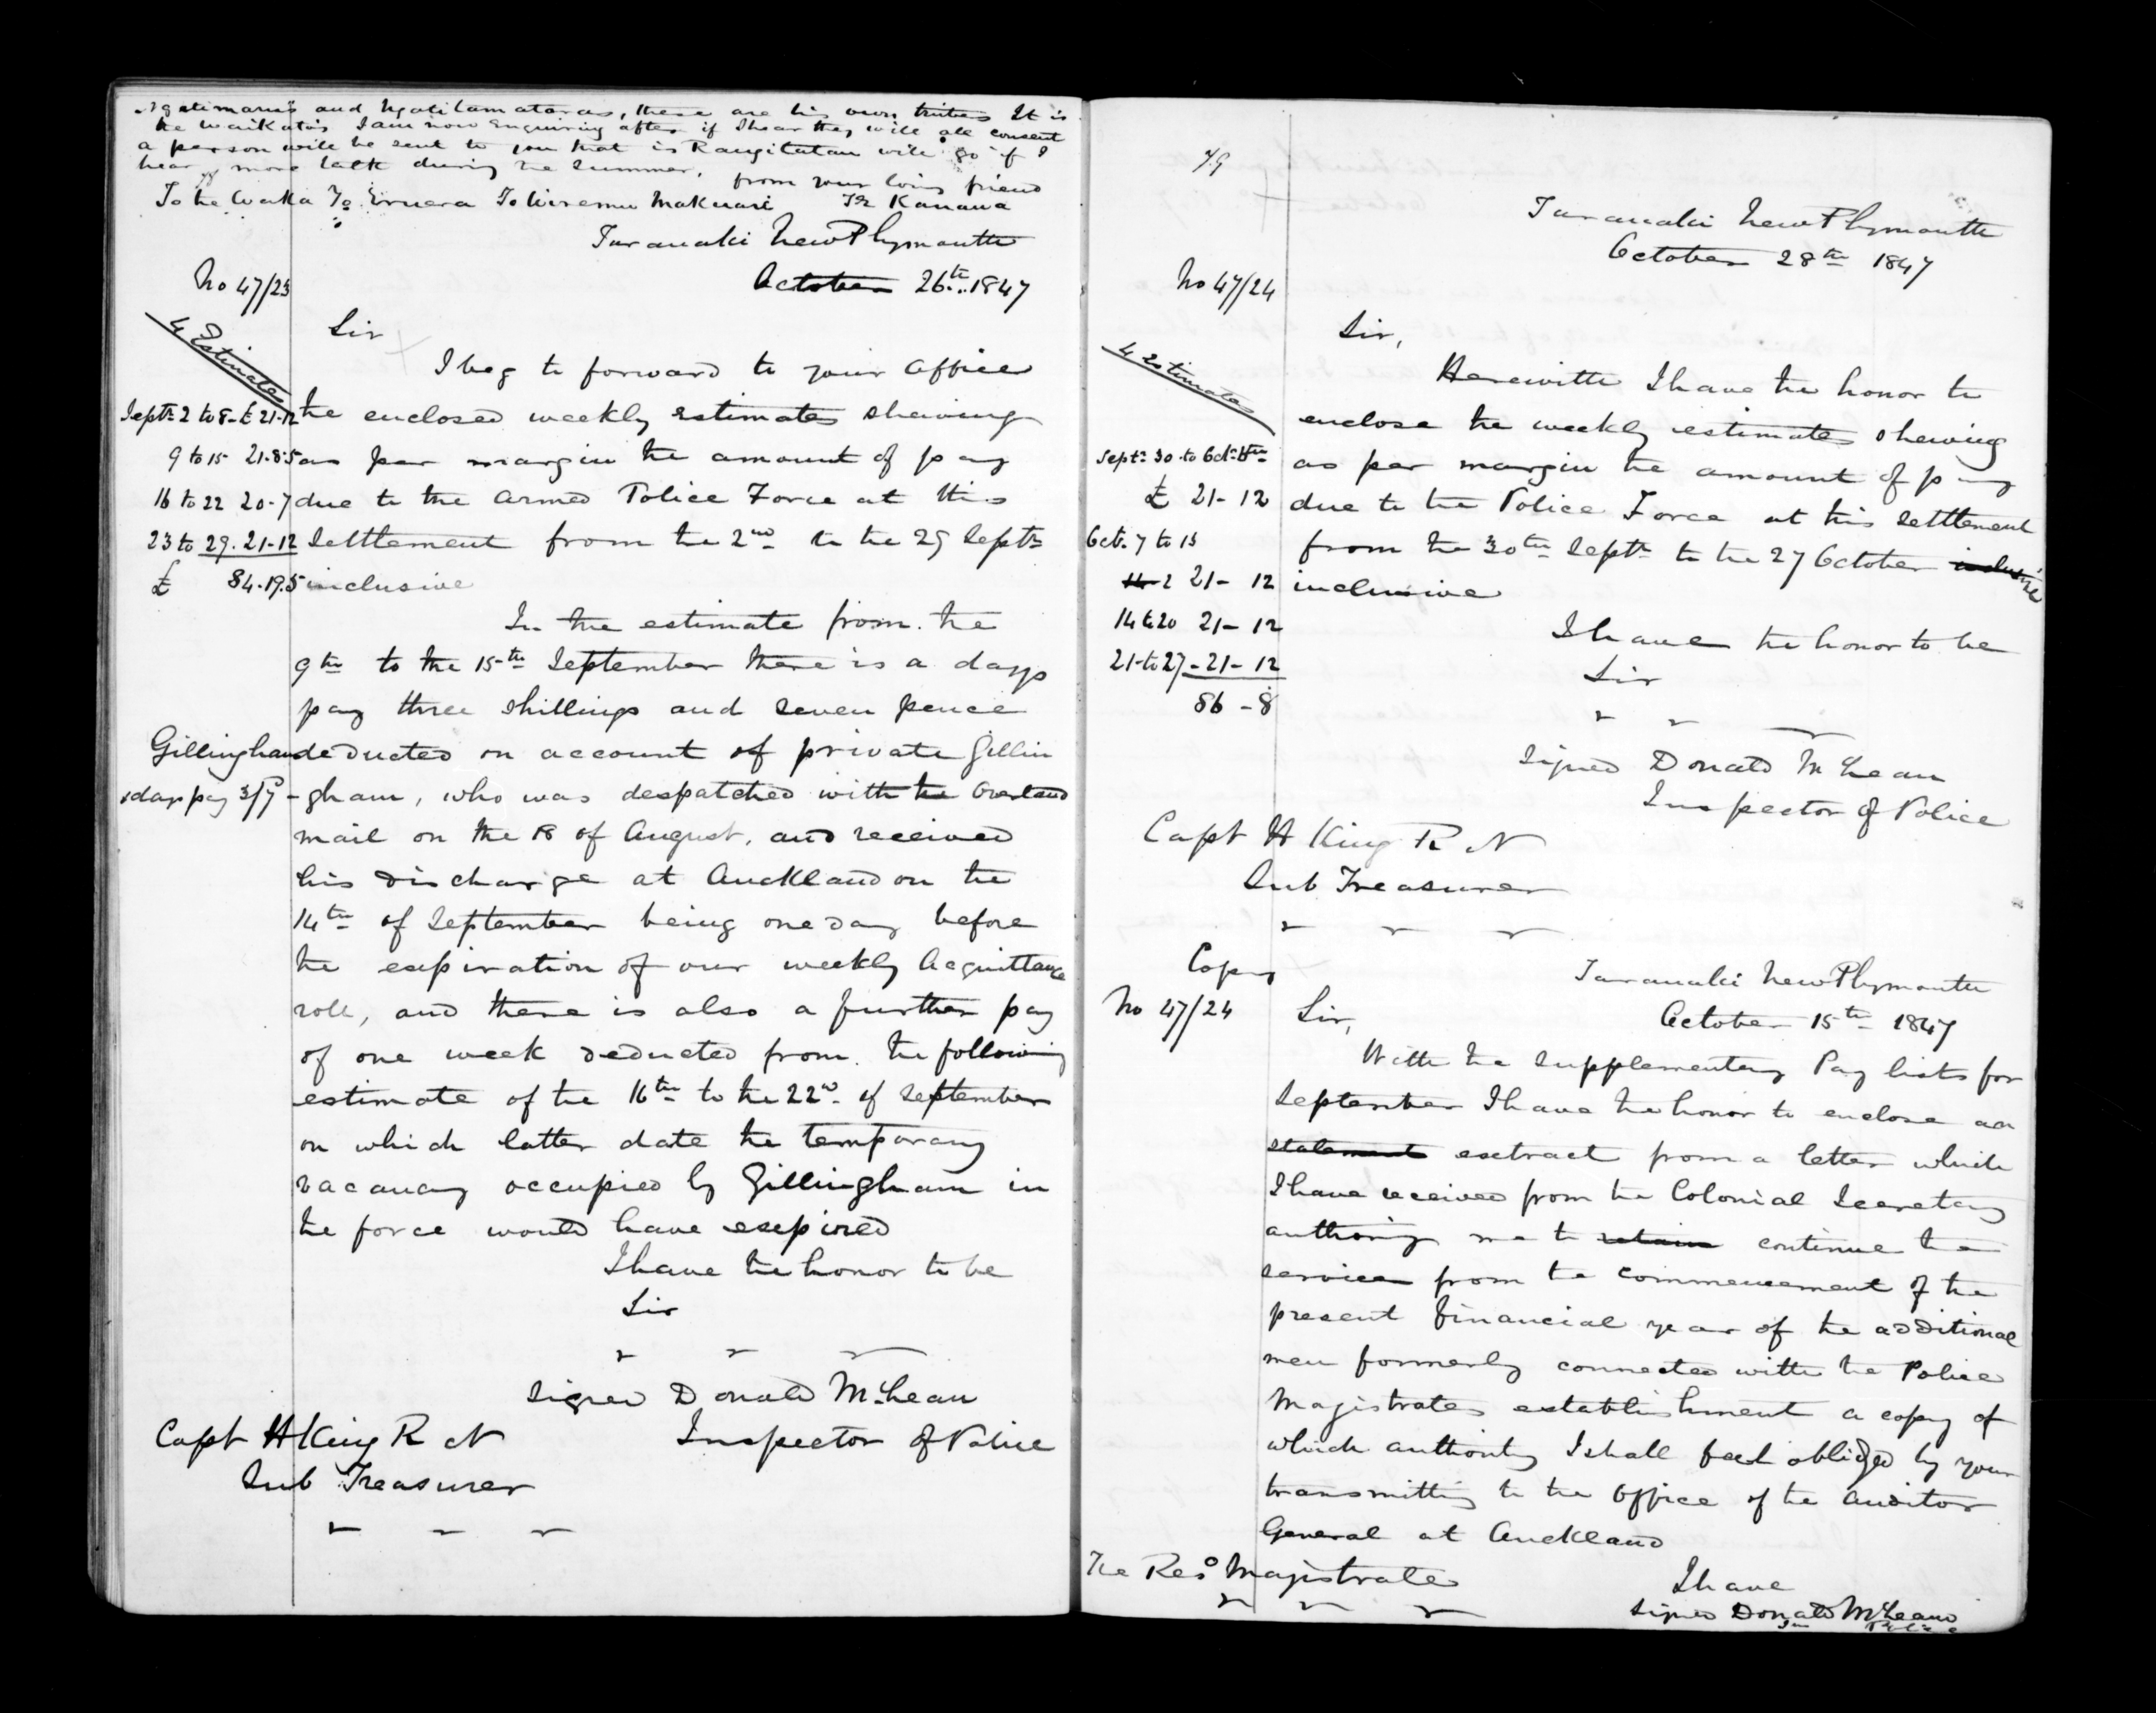 Ngatimaru's and Ngatitamateras, these are his own tribes It is
the Waikato's I am now enquiring after if I hear they will all consent
a person will be sent to you that is Rangitatau will go if I
hear more talk during the summer. from your loving friend
To te Waka To Eruera To Wiremu Te Kanawa
Taranaki New Plymouth
October 26th 1847
No 47/23
Sir
4 Estimates
I beg to forward to your Office
Septr 2 to 8 - £ 21-12 the enclosed weekly estimates shewing
9 to 15 21-8-5 as per margin the amount of pay
16 to 22 20-7 due to the Armed Police Force at this
23 to 29. 21-12 Settlement from the 2nd to the 29 Septr
£ 84.19.5 inclusive
In the estimate from the
9th to the 15th September there is a days
pay three shillings and seven pence
Gillingham deducted on account of private Gillin
1 days pay 3/7 - gham, who was despatched with the Overland
mail on the 18 of August, and received
his discharge at Auckland on the
14th of September being one day before
the expiration of our weekly Acquittance
roll, and there is also a further pay
of one week deducted from the following
estimate of the 16th to the 22nd of September
on which latter date the temporary
vacancy occupied by Gillingham in
the force would have expired
I have the honor to be
Sir
Signed Donald McLean
Capt H King R N Inspector of Police
Sub Treasurer
79
Taranaki New Plymouth
October 28th 1847
No 47/24
Sir,
4 Estimates
Herewith I have the honor to
enclose the weekly estimates shewing
Septr 30 to Octr as per margin the amount of pay
£ 21-12 due to the Police Force at this settlement
Oct. 7 to 13 from the 30th Septr to the 27 October inclusive
21- 12 inclusive
14 to 20 21- 12
I have the honor to be
21 to 27 - 21- 12
Sir
86 - 8
Signed Donald McLean
Inspector of Police
Capt H King R N
Sub Treasurer
Copy
Taranaki New Plymouth
No 47/24 Sir, October 15th 1847
With the supplementary Pay lists for
September I have the honor to enclose an
statement extract from a letter which
I have received from the Colonial Secretary
authority me to retain continue the
services from the commencement of the
present financial year of the additional
men formerly connected with the Police
Magistrates establishment a copy of
which authority I shall feel obliged by your
transmitting to the Office of the Auditor
General at Auckland
The Resd Magistrate
I have
Signed Donald McLean